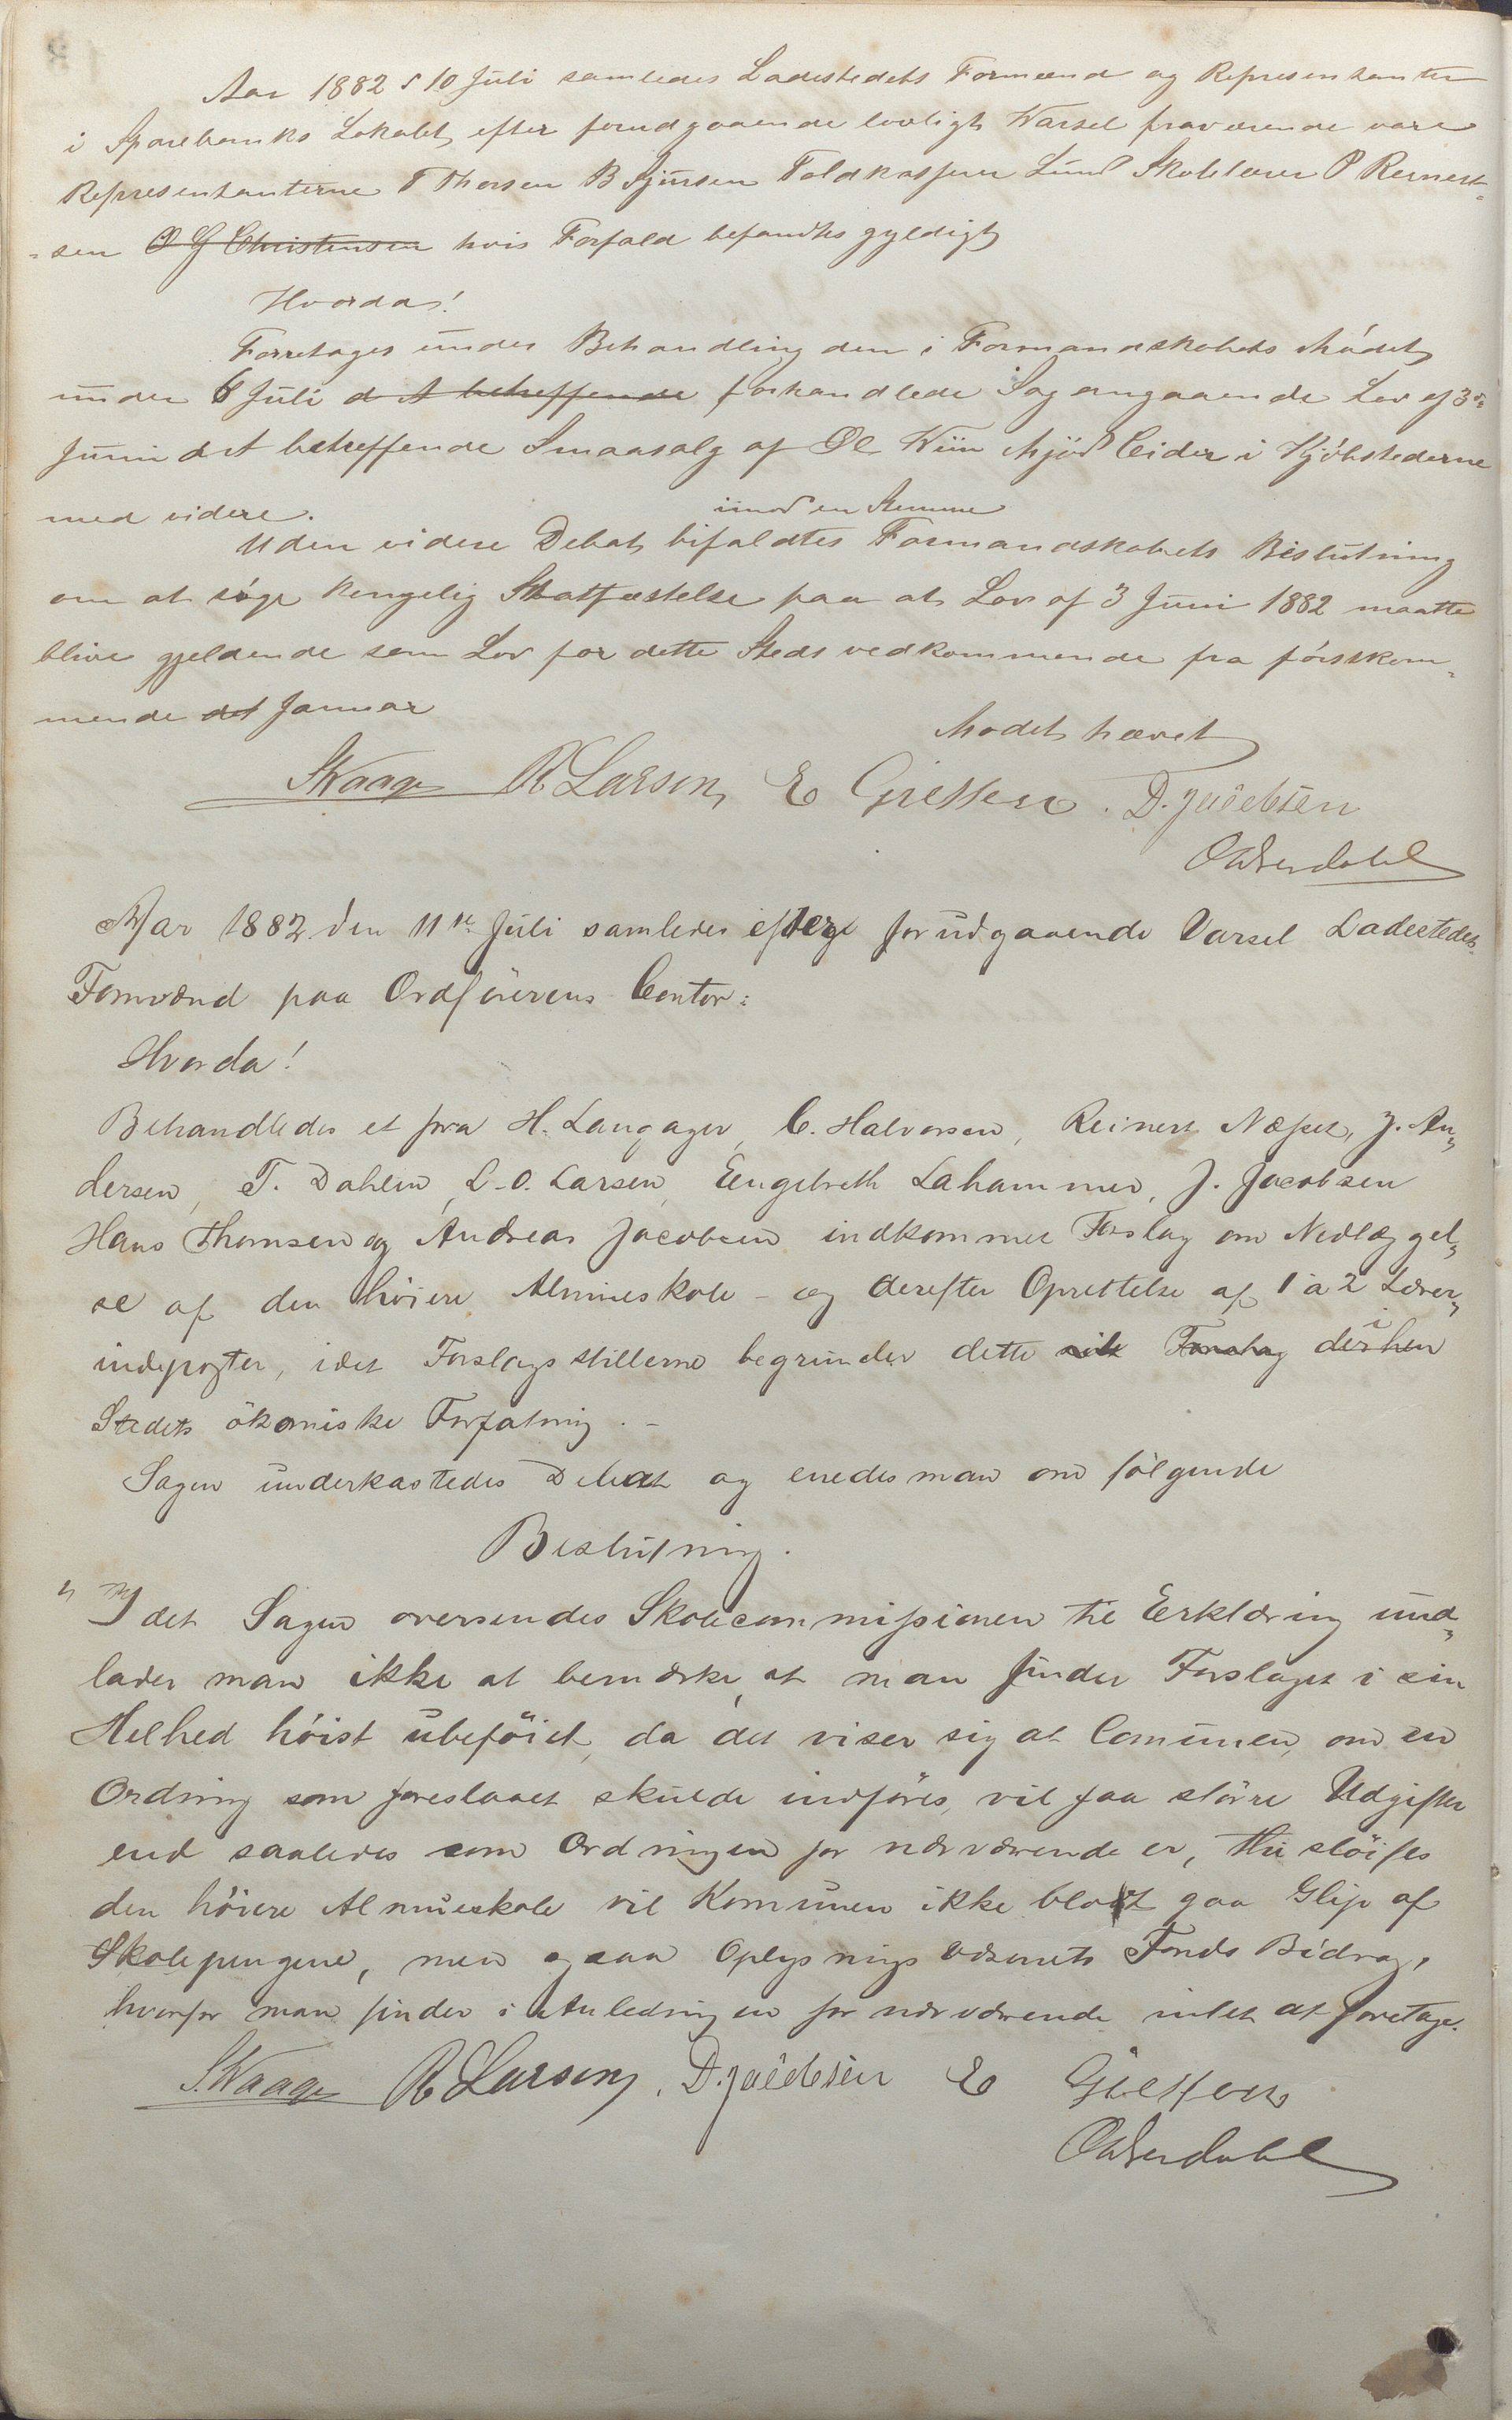 Aar 1882 d 10 Juli samledes Ladestedets Formænd og Representanter
i Sparebanks Lokalet efter forudgaaende lovligt Varsel fraværende vare
Representanterne T Thorsen B Sjursen Toldkasserer Lund Skolelærer P Reinert-
-sen O G Christensen hvis Forfald befandtes gyldigt
Hvorda!
Forretoges under Behandling den i Formandskabets Mødet
under 6 Juli d A betreffende forhandlede Sag angaaende Lov af 3die
Juni d A betreffende Smaasalg af Øl Viin Mjød Cider i Kjøbstederne
med videre.
imod en Stemme
Uden videre Debat bifaldtes Formandskabets Beslutning
om at søge kongelig Stadfæstelse paa at Lov af 3 Juni 1882 maatte
blive gjeldende som Lov for dette Steds vedkommende fra førstkom-
mende det Januar
Mødet hævet
S Waage R Larsen, E Giertsen. D. Jacobsen
O Aderdahl
Aar 1882 den 11te Juli samledes efter forudgaaende Varsel Ladestedets
Formænd paa Ordførerens Contor:
Hvorda!
Behandledes et fra H. Langager, C. Halvorsen, Reinert Næset, J. An„
dersen, T. Dahlen, L. O. Larsen, Eengebreth Lahammer, J. Jacobsen
Hans Thomsen og Andreas Jacobsen indkommet Forslag om Nedlæggel„
se af den høiere Almueskole - og derefter Oprettelse af 1 à 2 Lærer„
indeposter, idet Forslagsstillerne begrunder dette sit Forslag derhen i
Stedets økomiske Forfatning. -
Sagen underkastedes Debat og enedes man om følgende
Beslutning.
„ Idet Sagen oversendes Skolecommissionen til Erklæring und„
lader man ikke at bemærke, at man finder Forslaget i sin
Helhed høist ubeføiet, da det viser sig at Comunen, om en
Ordning som foreslaaet skulde indføres, vil faa større Udgifter
end saaledes som Ordningen for nærværende er, thi sløifes
den høiere Almueskole vil Komunen ikke blot gaa Glip af
Skolepengene, men ogsaa Oplysnings Væsenets Fonds Bidrag,
hvorfor man finder i Anledningen for nærværende intet at foretage.
S. Waage R Larsen, D. Jacobsen E Giertsen
O Aderdahl